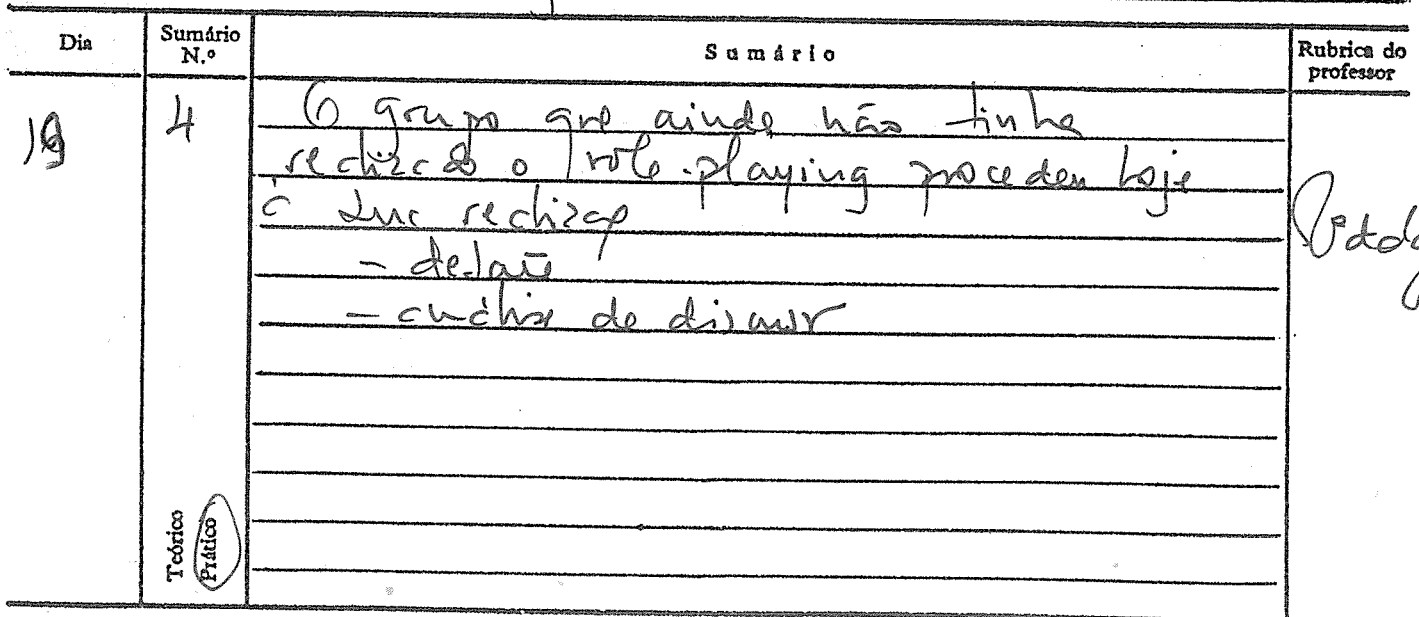 Dia
Sumário N.º
Sumário
Rubrica do professor
19
4
O grupo que ainda não tinha
realizado o role-playing procedeu hoje
à sua realização
- debate
- análise do discurso
Teórico
Prático